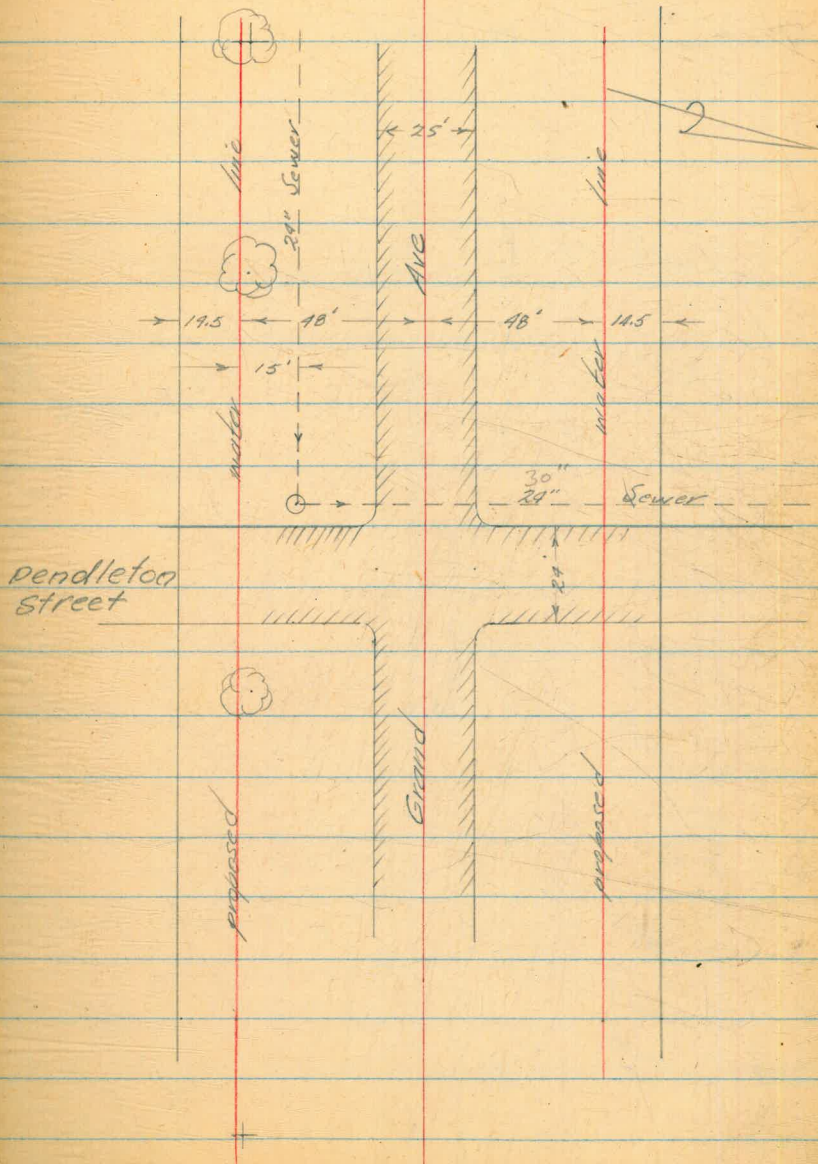 line
24" Sewer
25'
line
Ave
14.5
48'
48'
14.5
15'
water
water
30"
24"
Sewer
24'
Pendleton
Street
Grand
proposed
proposed